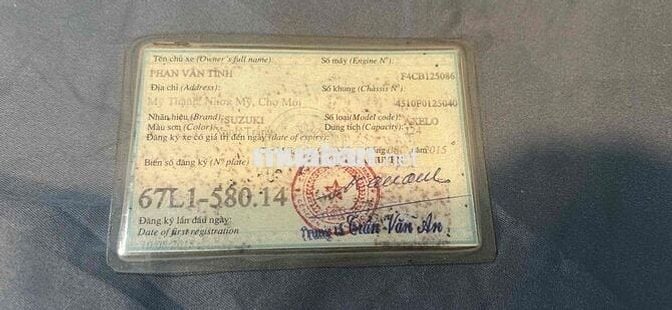 Tên chủ xe (Owner's full name) Số máy (Engine Nº):
PHAN VĂN TÍNH F4CB125086
Địa chỉ (Address): Số khung (Chassis Nº)
Mỹ Thạnh, Nhơn Mỹ, Chợ Mới 4510F0125040
Nhãn hiệu (Brand): SUZUKI Số loại (Model code): AXELO
Màu sơn (Color): Dung tích (Capacity): 124
Đăng ký xe có giá trị đến ngày (date of expiry)
năm 2015
Biển số đăng ký (Nº plate)
muaban.net
67L1-580.14
Đăng ký lần đầu ngày:
Date of first registration
Trung tá Trần Văn An